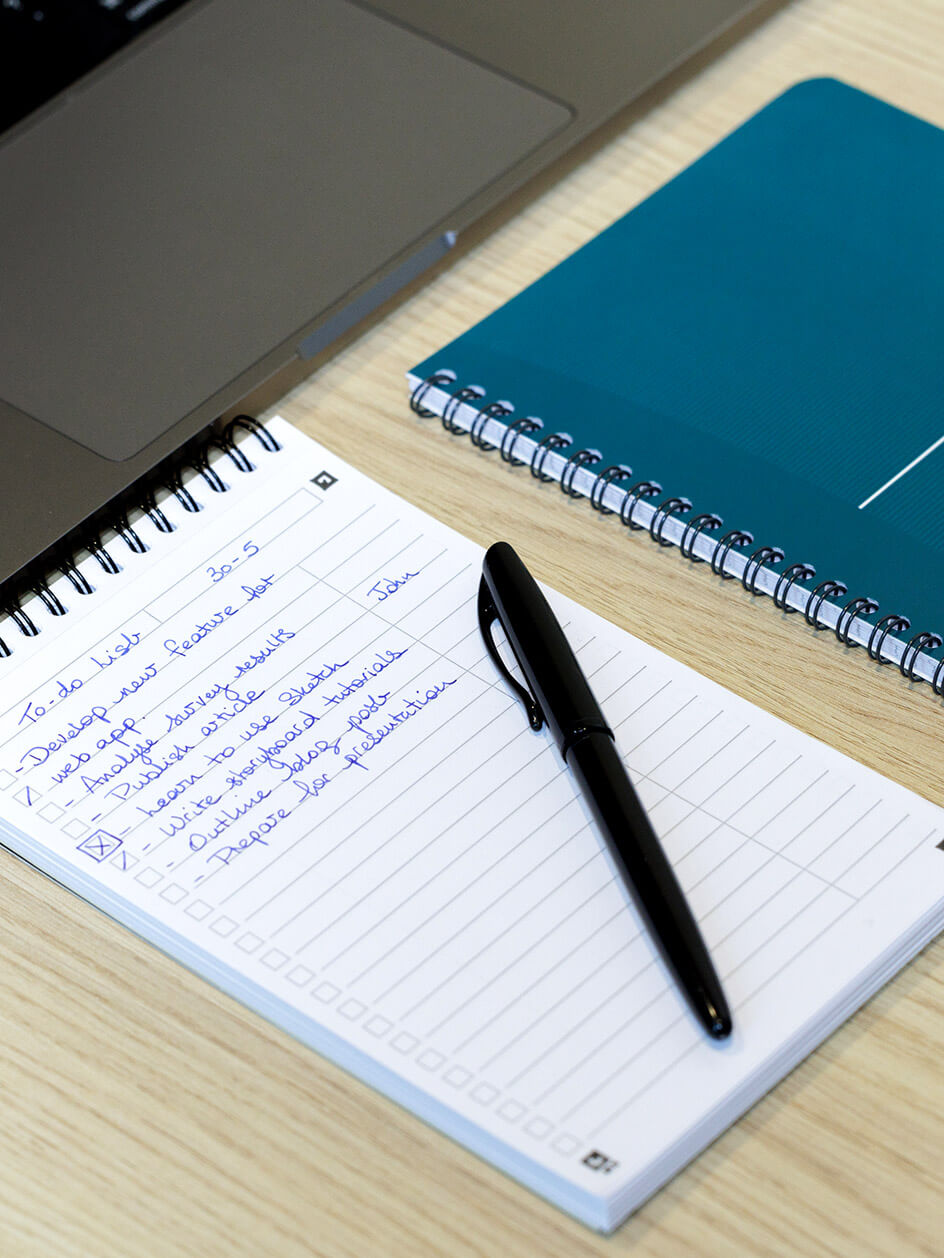 To-do list 30-5
- Develop new feature for John
web app.
- Analyse survey results
- Publish article
- Learn to use Sketch
- Write storyboard tutorials
- Outline blog post
- Prepare for presentation